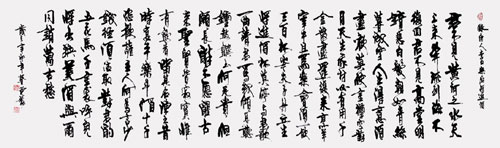 君不見黃河之水天
上來奔流到海不
復回君不見高堂明
鏡悲白髮朝如青絲
暮成雪人生得意
須盡歡莫使金樽空對
月天生我材必有用千
金散盡還復來烹羊
宰牛且為樂會須一飲
三百杯岑夫子丹丘生
將進酒杯莫停與君歌
一曲請君為我傾耳聽
鐘鼓饌玉何足貴但
願長醉不願醒
古來聖賢皆寂寞惟
有飲者留其名陳王昔
時宴平樂斗酒十千
恣歡謔主人何為言少
錢徑須沽取對君酌
五花馬千金裘呼兒
將出換美酒與爾
同銷萬古愁